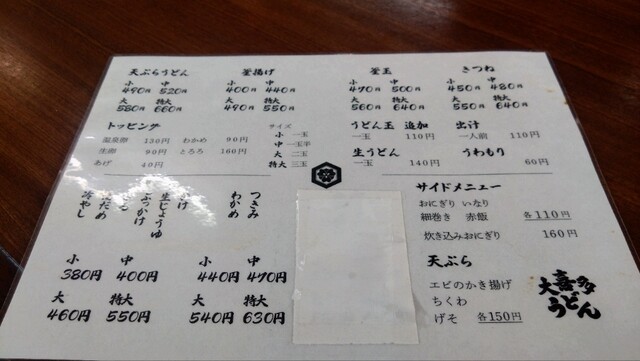 天ぷらうどん
小 中
490円 520円
大 特大
580円 660円
釜揚げ
小 中
400円 440円
大 特大
490円 550円
釜玉
小 中
470円 500円
大 特大
560円 640円
きつね
小 中
450円 480円
大 特大
550円 640円
トッピング
温泉卵 130円 わかめ 90円
生卵 90円 とろろ 160円
あげ 40円
サイズ
小 一玉
中 一玉半
大 二玉
特大 三玉
うどん玉 追加
一玉 110円
出汁
一人前 110円
生うどん
一玉 140円
うわもり
60円
つきみ
わかめ
生じょうゆ
ぶっかけ
冷やし
小 中
380円 400円
大 特大
460円 550円
小 中
440円 470円
大 特大
540円 630円
サイドメニュー
おにぎり いなり
細巻き 赤飯 各110円
炊き込みおにぎり 160円
天ぷら
エビのかき揚げ
ちくわ
げそ 各150円
大喜多
うどん